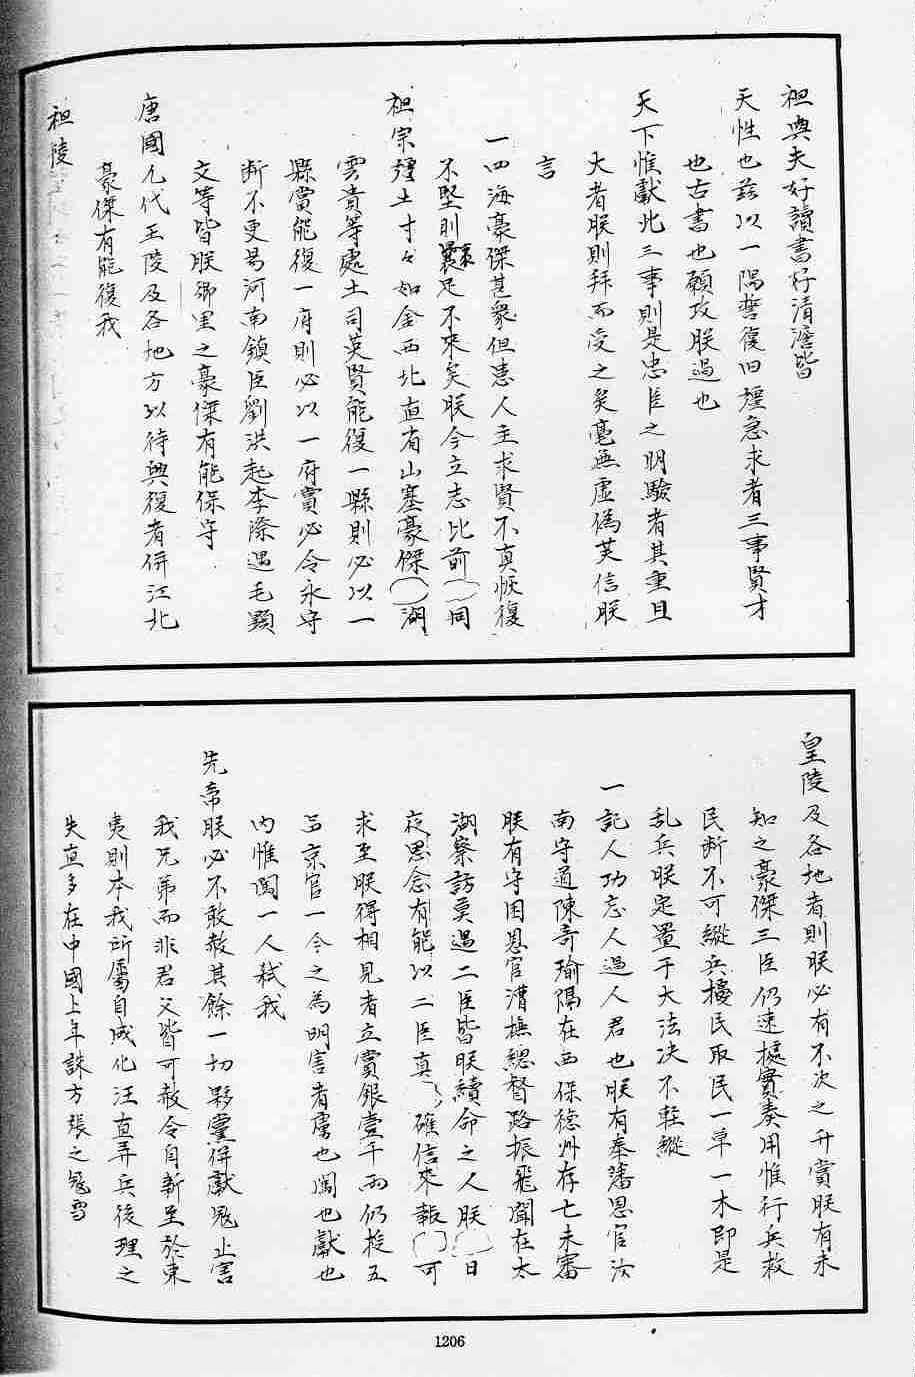 祖與夫好讀書好清澹皆
天性也茲以一隅誓復旧疆急求者三事賢才
也古書也願攻朕過也
天下惟獻此三事則是忠臣之明驗者其重且
大者朕則拜而受之矣毫無虛偽芙信朕
言
一四海豪傑甚衆但患人主求賢不真恢復
不堅則裹足不來矣朕今立志比前同
祖宗疆土寸々如金西北直有山塞豪傑湖
雲貴等處土司英賢能復一縣則必以一
縣賞能復一府則必以一府賞必令永守
断不更易河南鎮臣劉洪起李際遇毛顯
文等皆朕鄉里之豪傑有能保守
唐國九代王陵及各地方以待興復者併江北
豪傑有能復我
祖陵
皇陵及各地者則朕必有不次之升賞朕有未
知之豪傑三臣仍速據實奏用惟行兵救
民断不可縱兵擾民取民一草一木即是
乱兵朕定置于大法决不輕縱
一記人功忘人過人君也朕有奉藩恩官汝
南守道陳奇瑜隔在西保德州存亡未審
朕有守困恩官漕撫總督路振飛聞在太
湖察訪莫過二臣皆朕續命之人朕日
夜思念有能以二臣真確信來報可
求至朕得相見者立賞銀壹千両仍授五
品京官一令之為明害者虜也闖也獻也
内惟闖一人弒我
先帝朕必不敢赦其餘一切夥黨併獻寇止害
我兄弟而非君父皆可赦令自新至於東
夷則本我所屬自成化汪直弄兵後理之
失直多在中國上年誅方張之寇雪
1206